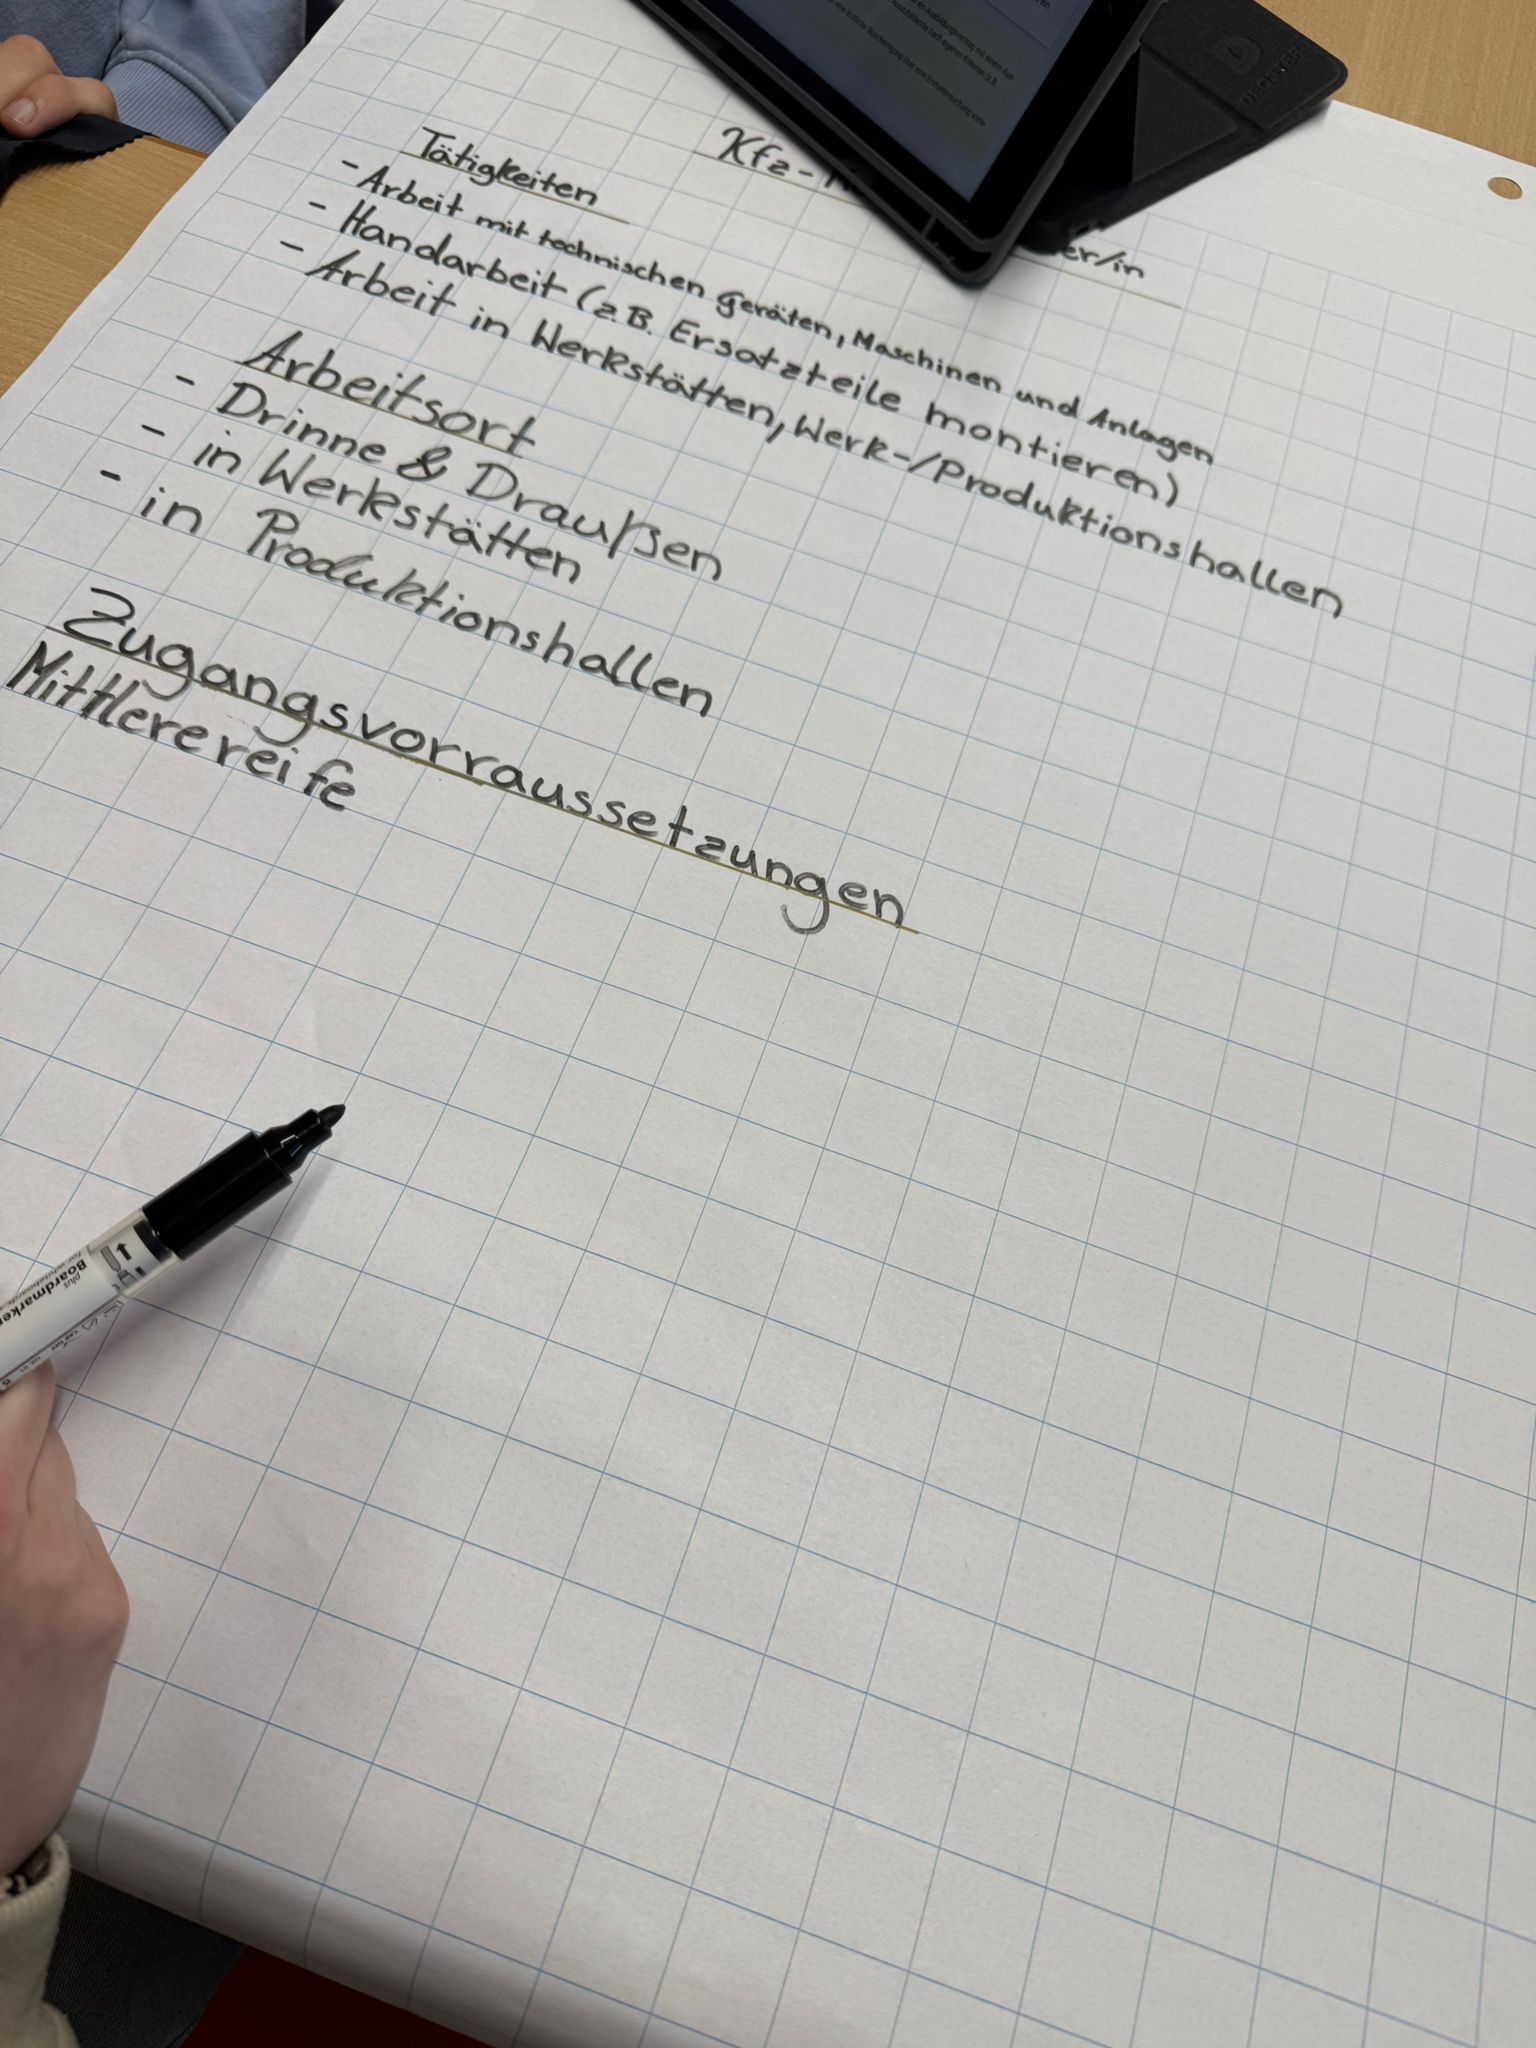 Kfz-
er/in
Tätigkeiten
- Arbeit mit technischen Geräten, Maschinen und Anlagen
- Handarbeit (z.B. Ersatzteile montieren)
- Arbeit in Werkstätten, Werk-/Produktionshallen
Arbeitsort
- Drinne & Draußen
- in Werkstätten
- in Produktionshallen
Zugangsvorraussetzungen
Mittlere reife
plus
Boardmarker